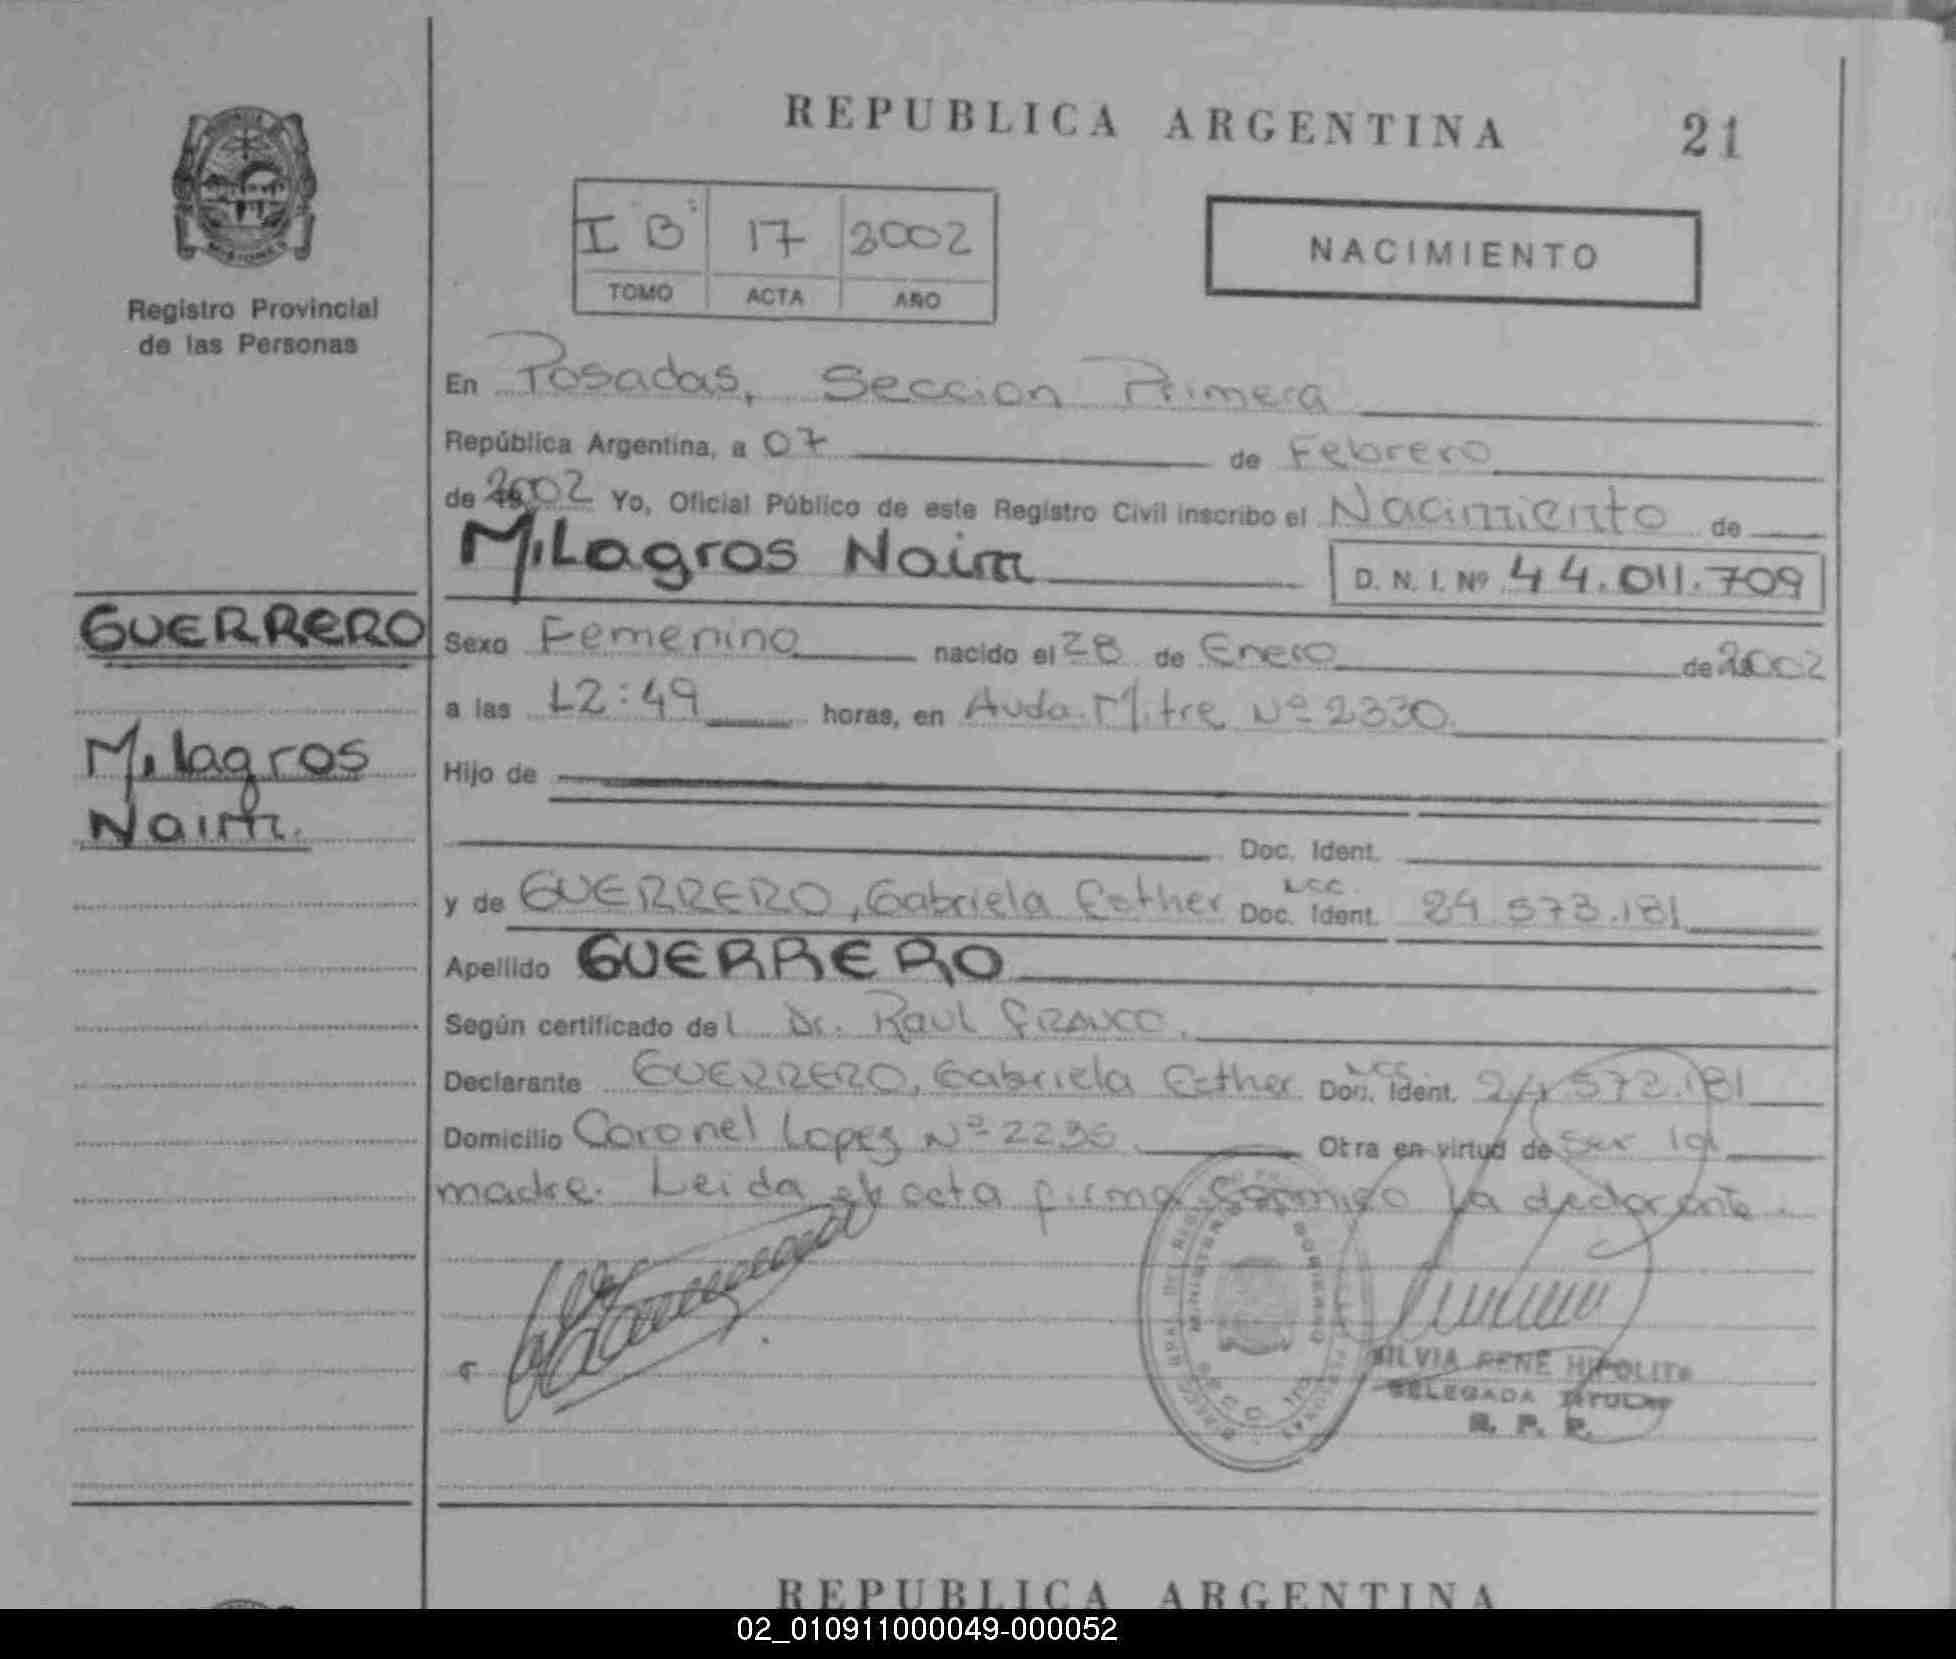 REPUBLICA ARGENTINA 21
I "B" 17 2002
TOMO ACTA AÑO
NACIMIENTO
Registro Provincial
de las Personas
En Posadas, Seccion Primera
República Argentina, a 07 de Febrero
de 2002 Yo, Oficial Público de este Registro Civil inscribo el Nacimiento de
Milagros Naim
D. N. I. Nº 44.011.709
GUERRERO
Milagros
Naim.
Sexo Femenino nacido el 28 de Enero de 2002
a las 12:49 horas, en Avda. Mitre Nº 2330
Hijo de
Doc. Ident.
y de GUERRERO, Gabriela Esther Doc. Ident. 24.573.181
Apellido GUERRERO
Según certificado del Dr. Raul FRANCO.
Declarante GUERRERO, Gabriela Esther Doc. Ident. 24.573.181
Domicilio Coronel Lopez Nº 2236 Otra en virtud de ser la
madre. Leida el acta firma conmigo la declarante.
MINISTERIO DE GOBIERNO
SILVIA RENE HIPOLITO
DELEGADA TITULAR
R. P. P.
REPUBLICA ARGENTINA
02_010911000049-000052